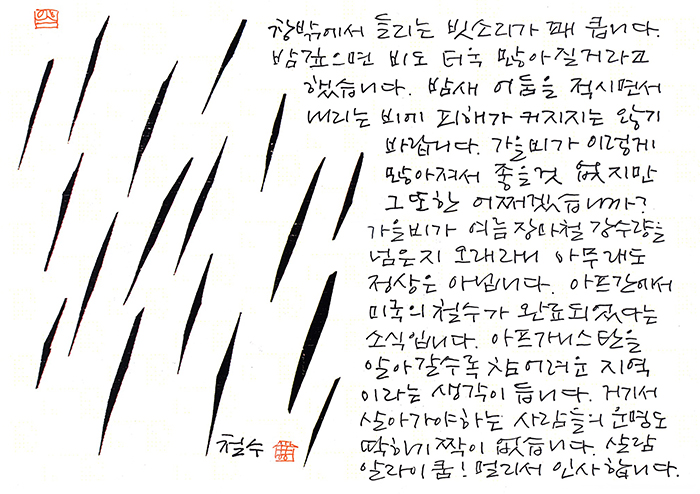 창밖에서 들리는 빗소리가 꽤 큽니다.
밤 깊으면 비도 더욱 많아질거라고
했습니다. 밤새 어둠을 적시면서
내리는 비에 피해가 커지지는 않기
바랍니다. 가을비가 이렇게
많아져서 좋을것 없지만
그 또한 어쩌겠습니까?
가을비가 여름 장마철 강수량을
넘은지 오래라니 아무래도
정상은 아닙니다. 아프간에서
미국의 철수가 완료되었다는
소식입니다. 아프가니스탄을
알아갈수록 참 어려운 지역
이라는 생각이 듭니다. 거기서
살아가야하는 사람들의 운명도
딱하기 짝이 없습니다. 살람
알라이쿰! 멀리서 인사합니다.
철수